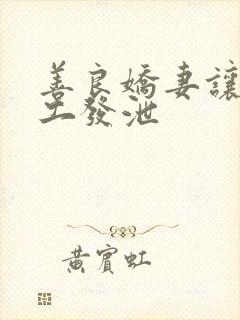 善良嬌妻讓
工發泄
黃賓虹